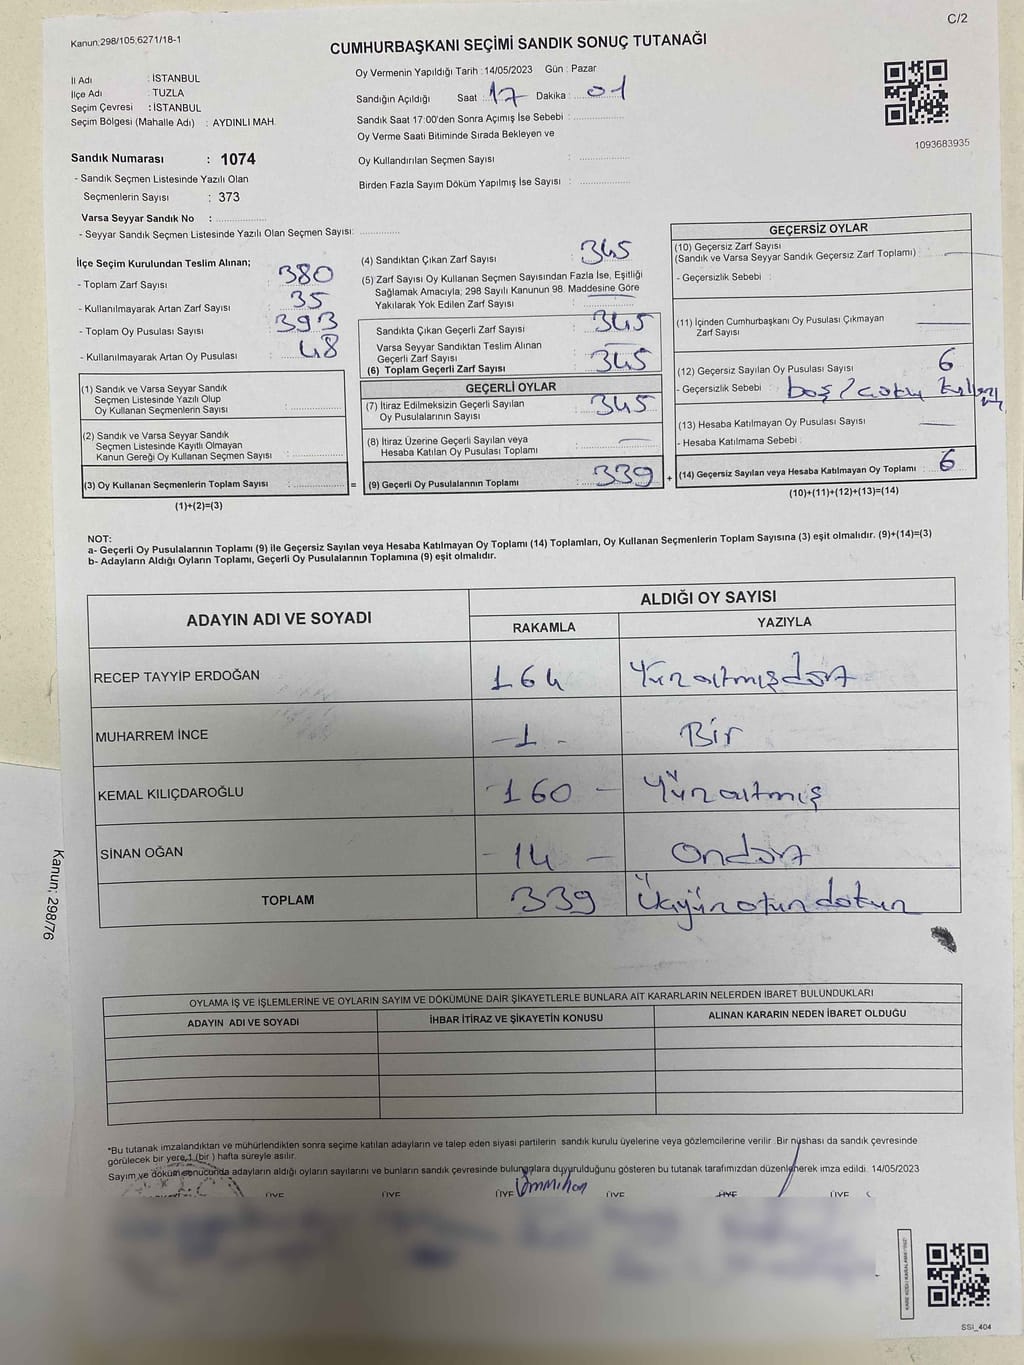 C/2
Kanun;298/105,6271/18-1
CUMHURBAŞKANI SEÇİMİ SANDIK SONUÇ TUTANAĞI
İl Adı : İSTANBUL
İlçe Adı : TUZLA
Seçim Çevresi : İSTANBUL
Seçim Bölgesi (Mahalle Adı) : AYDINLI MAH.
Oy Vermenin Yapıldığı Tarih :14/05/2023 Gün : Pazar
Sandığın Açıldığı Saat : 17 Dakika : 01
Sandık Saat 17:00'den Sonra Açımış İse Sebebi :
Oy Verme Saati Bitiminde Sırada Bekleyen ve
Oy Kullandırılan Seçmen Sayısı :
Birden Fazla Sayım Döküm Yapılmış İse Sayısı :
1093683935
Sandık Numarası : 1074
- Sandık Seçmen Listesinde Yazılı Olan
Seçmenlerin Sayısı : 373
Varsa Seyyar Sandık No :
- Seyyar Sandık Seçmen Listesinde Yazılı Olan Seçmen Sayısı:
İlçe Seçim Kurulundan Teslim Alınan;
- Toplam Zarf Sayısı : 380
- Kullanılmayarak Artan Zarf Sayısı : 35
- Toplam Oy Pusulası Sayısı : 393
- Kullanılmayarak Artan Oy Pusulası : 48
(1) Sandık ve Varsa Seyyar Sandık
Seçmen Listesinde Yazılı Olup
Oy Kullanan Seçmenlerin Sayısı :
(2) Sandık ve Varsa Seyyar Sandık
Seçmen Listesinde Kayıtlı Olmayan
Kanun Gereği Oy Kullanan Seçmen Sayısı :
(3) Oy Kullanan Seçmenlerin Toplam Sayısı : =
(1)+(2)=(3)
(4) Sandıktan Çıkan Zarf Sayısı : 345
(5) Zarf Sayısı Oy Kullanan Seçmen Sayısından Fazla İse, Eşitliği
Sağlamak Amacıyla, 298 Sayılı Kanunun 98. Maddesine Göre
Yakılarak Yok Edilen Zarf Sayısı :
Sandıkta Çıkan Geçerli Zarf Sayısı : 345
Varsa Seyyar Sandıktan Teslim Alınan
Geçerli Zarf Sayısı :
(6) Toplam Geçerli Zarf Sayısı : 345
GEÇERLİ OYLAR
(7) İtiraz Edilmeksizin Geçerli Sayılan
Oy Pusulalarının Sayısı : 345
(8) İtiraz Üzerine Geçerli Sayılan veya
Hesaba Katılan Oy Pusulası Toplamı : —
(9) Geçerli Oy Pusulalarının Toplamı : 339 +
GEÇERSİZ OYLAR
(10) Geçersiz Zarf Sayısı
(Sandık ve Varsa Seyyar Sandık Geçersiz Zarf Toplamı) : —
- Geçersizlik Sebebi :
(11) İçinden Cumhurbaşkanı Oy Pusulası Çıkmayan
Zarf Sayısı : —
(12) Geçersiz Sayılan Oy Pusulası Sayısı : 6
- Geçersizlik Sebebi : boş/
(13) Hesaba Katılmayan Oy Pusulası Sayısı : —
- Hesaba Katılmama Sebebi :
(14) Geçersiz Sayılan veya Hesaba Katılmayan Oy Toplamı : 6
(10)+(11)+(12)+(13)=(14)
NOT:
a- Geçerli Oy Pusulalarının Toplamı (9) ile Geçersiz Sayılan veya Hesaba Katılmayan Oy Toplamı (14) Toplamları, Oy Kullanan Seçmenlerin Toplam Sayısına (3) eşit olmalıdır. (9)+(14)=(3)
b- Adayların Aldığı Oyların Toplamı, Geçerli Oy Pusulalarının Toplamına (9) eşit olmalıdır.
ADAYIN ADI VE SOYADI ALDIĞI OY SAYISI
RAKAMLA YAZIYLA
RECEP TAYYİP ERDOĞAN 164 Yüzaltmışdört
MUHARREM İNCE -1- Bir
KEMAL KILIÇDAROĞLU -160- Yüzaltmış
SİNAN OĞAN -14- Ondört
TOPLAM 339 Üçyüzotuzdokuz
Kanun; 298/76
OYLAMA İŞ VE İŞLEMLERİNE VE OYLARIN SAYIM VE DÖKÜMÜNE DAİR ŞİKAYETLERLE BUNLARA AİT KARARLARIN NELERDEN İBARET BULUNDUKLARI
ADAYIN ADI VE SOYADI İHBAR İTİRAZ VE ŞİKAYETİN KONUSU ALINAN KARARIN NEDEN İBARET OLDUĞU
*Bu tutanak imzalandıktan ve mühürlendikten sonra seçime katılan adayların ve talep eden siyasi partilerin sandık kurulu üyelerine veya gözlemcilerine verilir. Bir nüshası da sandık çevresinde
görülecek bir yere 1 (bir) hafta süreyle asılır.
Sayım ve döküm sonucunda adayların aldığı oyların sayılarını ve bunların sandık çevresinde bulunanlara duyurulduğunu gösteren bu tutanak tarafımızdan düzenlenerek imza edildi. 14/05/2023
ÜYE ÜYE ÜYE ÜYE ÜYE ÜYE
SSI_404